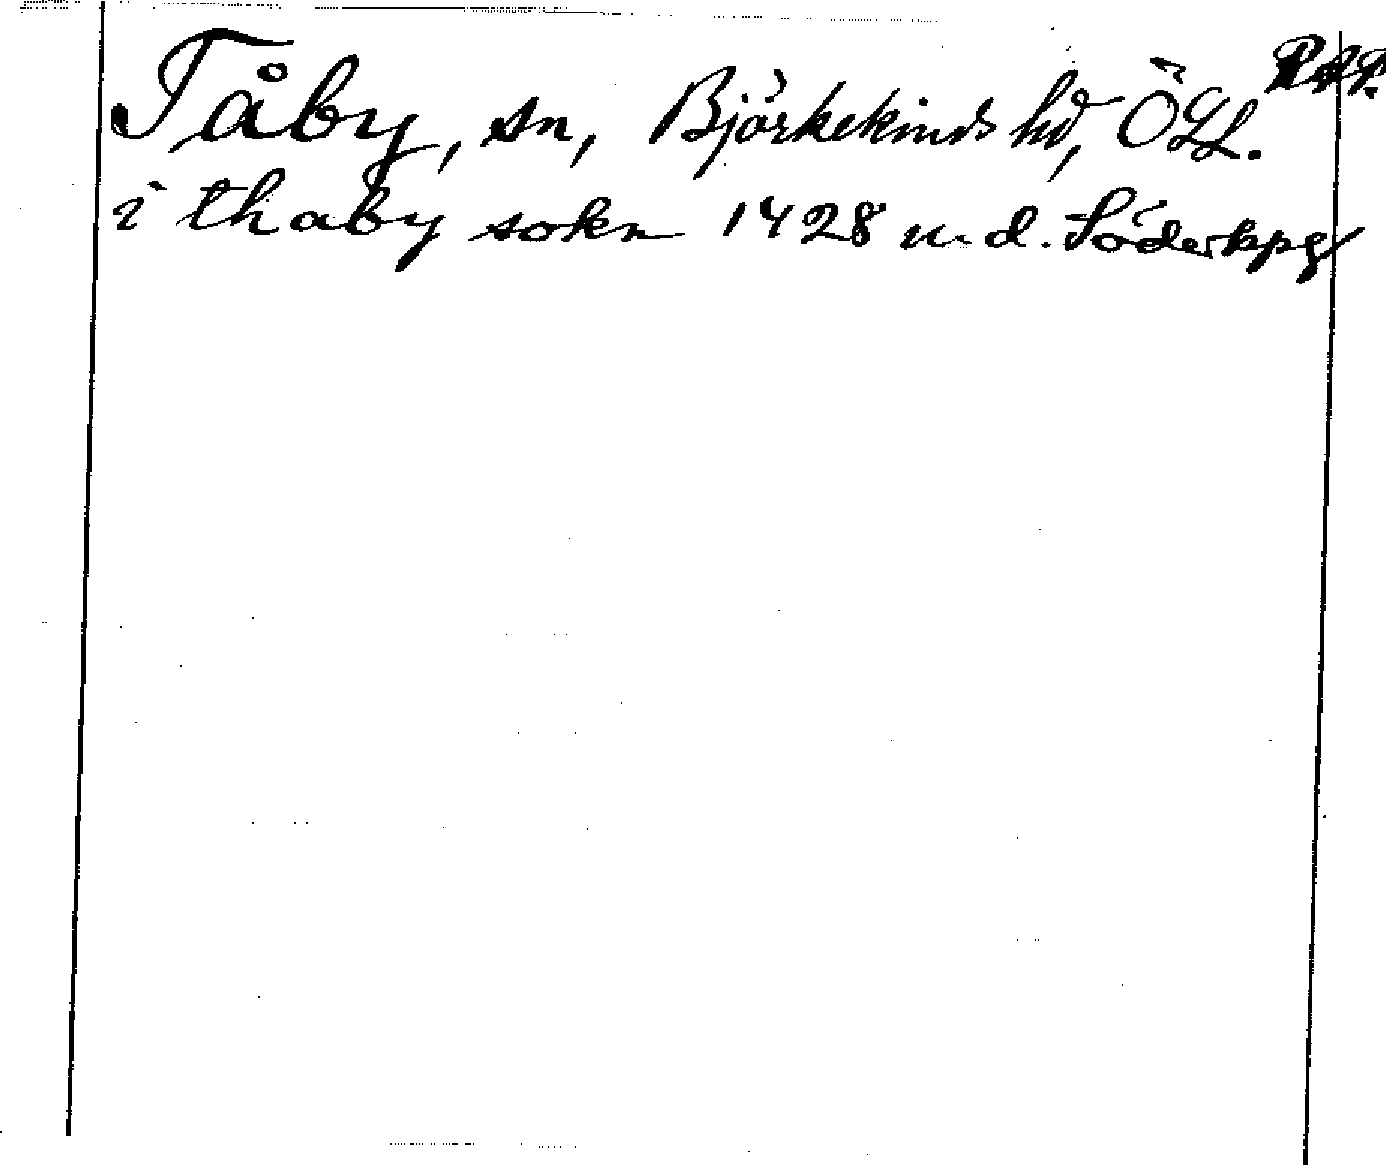 Tåby, sn, Björkekinds hd, ÖLL. RAP.
i thaby sokn 1428 u. d. Söderkpg